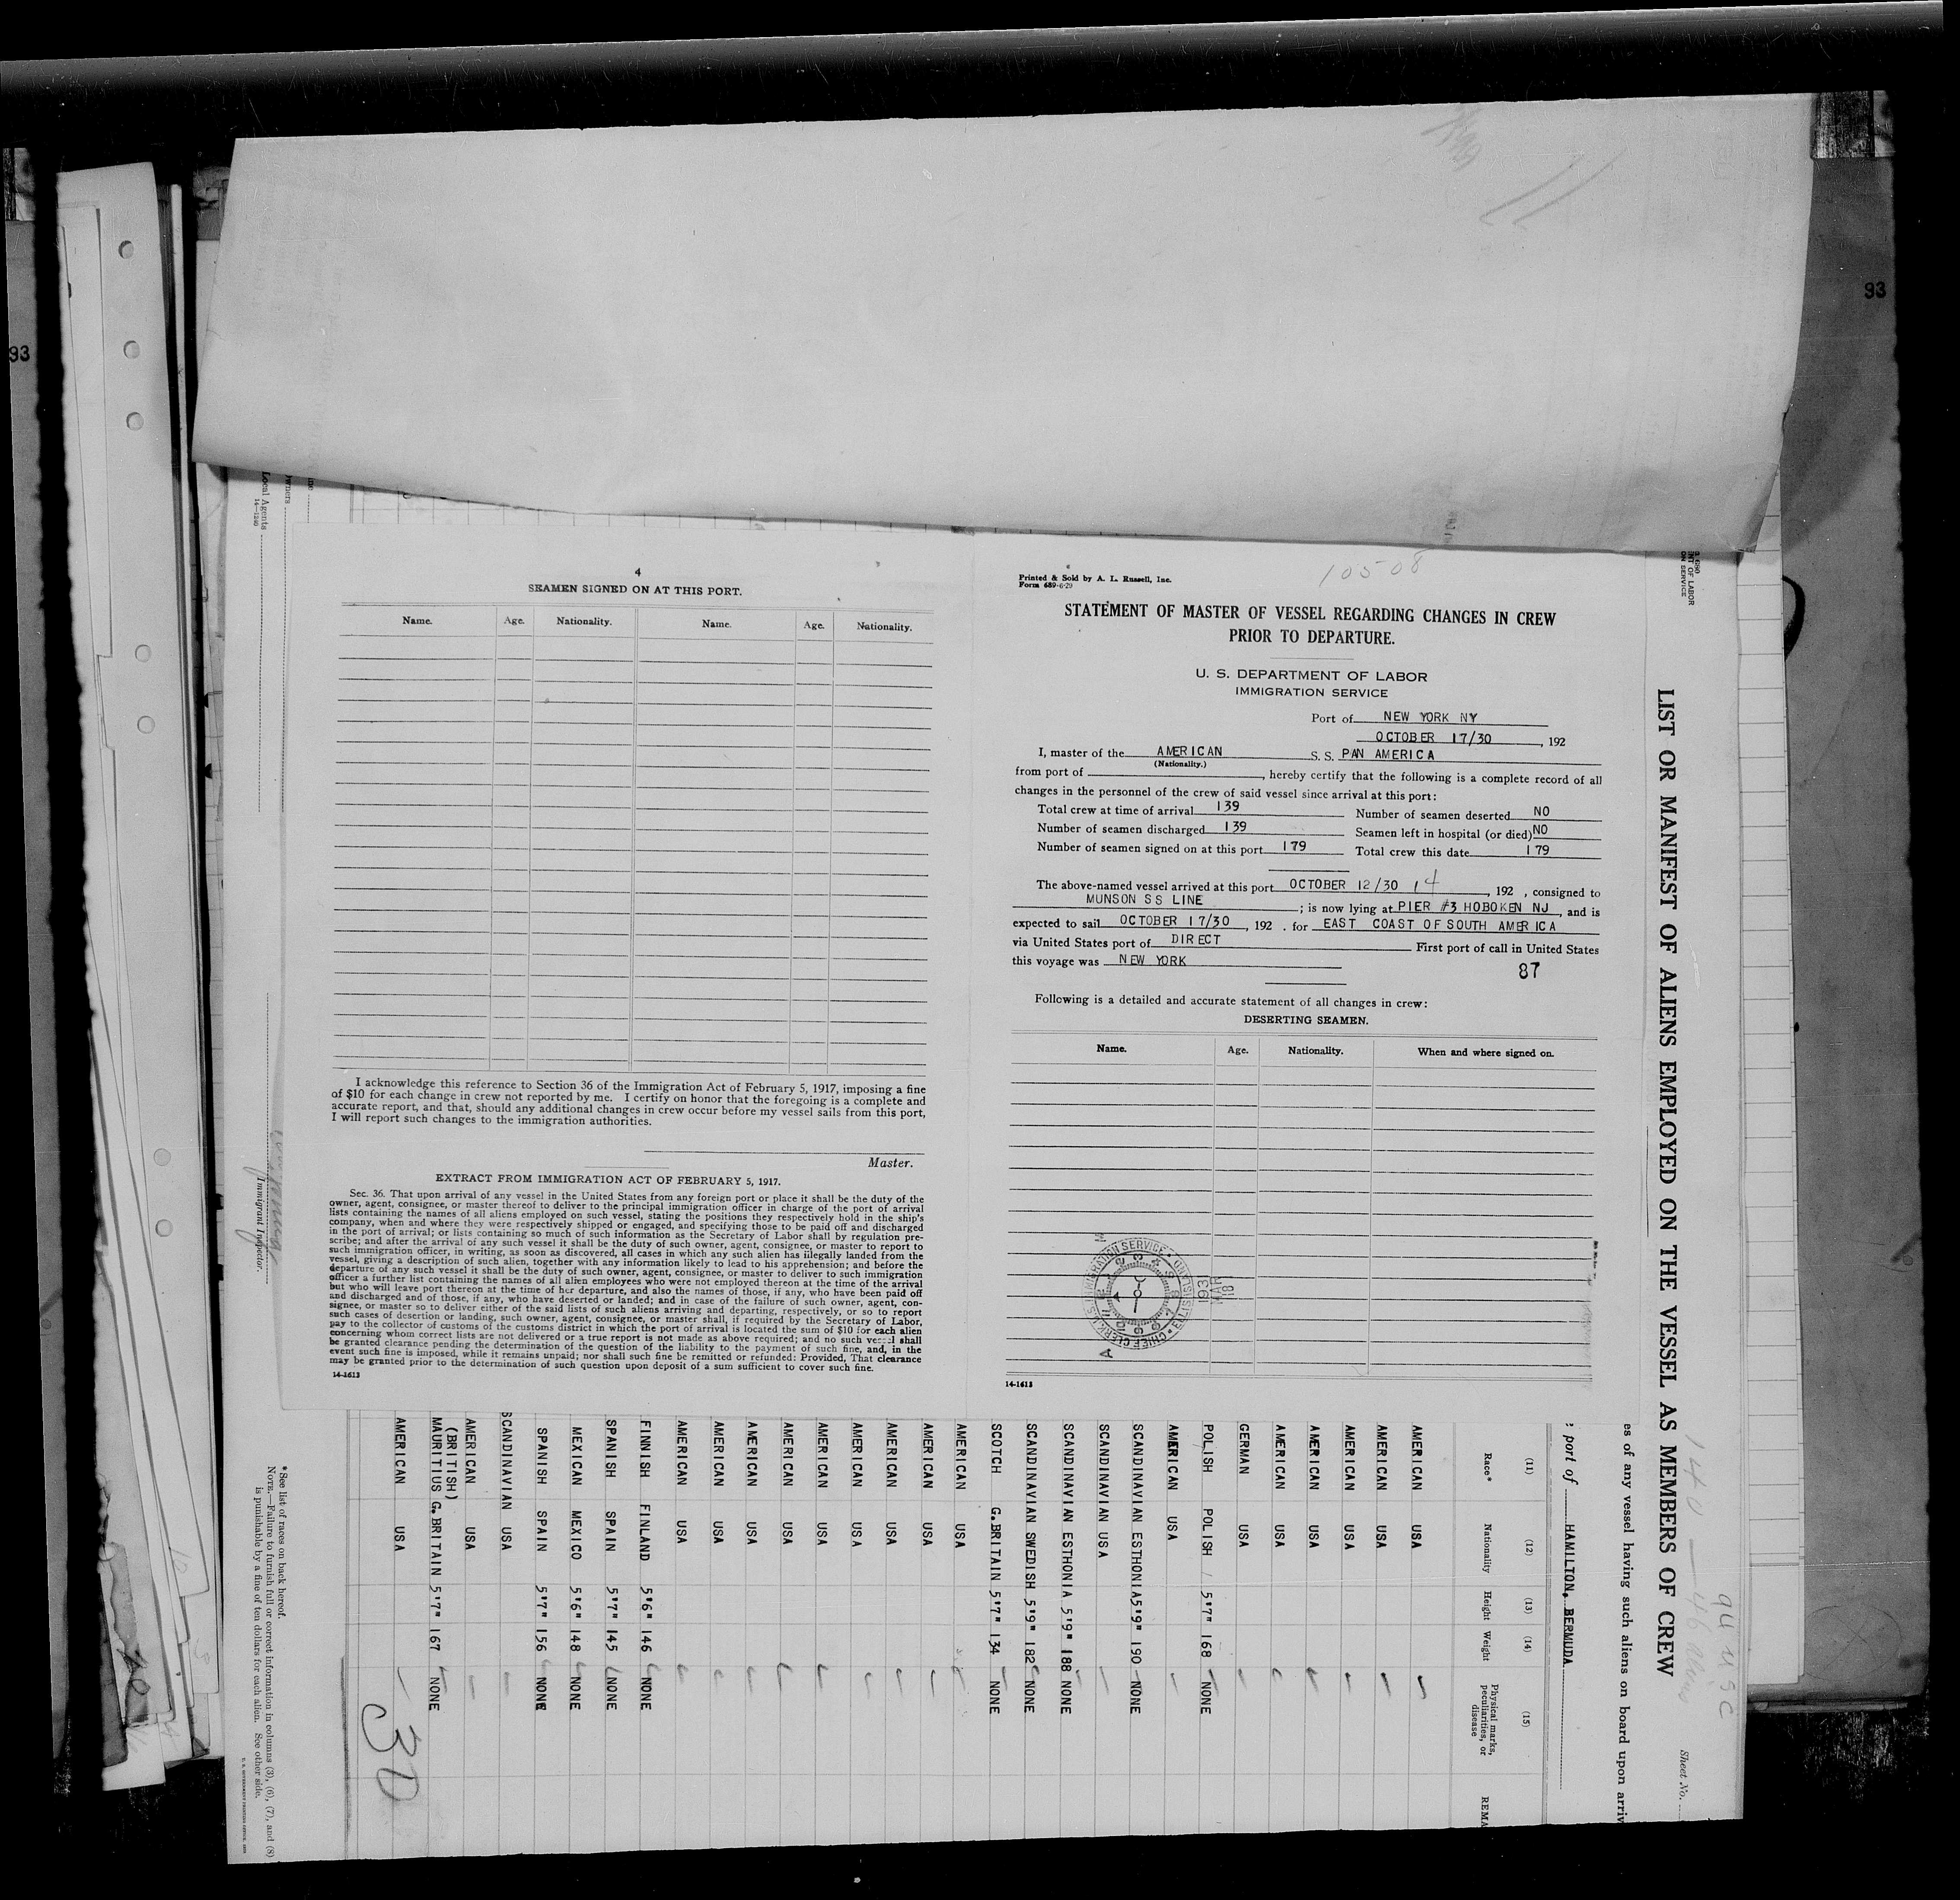 93
93
4
SEAMEN SIGNED ON AT THIS PORT.
Name. Age. Nationality. Name. Age. Nationality.
I acknowledge this reference to Section 36 of the Immigration Act of February 5, 1917, imposing a fine
of $10 for each change in crew not reported by me. I certify on honor that the foregoing is a complete and
accurate report, and that, should any additional changes in crew occur before my vessel sails from this port,
I will report such changes to the immigration authorities.
Master.
EXTRACT FROM IMMIGRATION ACT OF FEBRUARY 5, 1917.
Sec. 36. That upon arrival of any vessel in the United States from any foreign port or place it shall be the duty of the
owner, agent, consignee, or master thereof to deliver to the principal immigration officer in charge of the port of arrival
lists containing the names of all aliens employed on such vessel, stating the positions they respectively hold in the ship's
company, when and where they were respectively shipped or engaged, and specifying those to be paid off and discharged
in the port of arrival; or lists containing so much of such information as the Secretary of Labor shall by regulation pre-
scribe; and after the arrival of any such vessel it shall be the duty of such owner, agent, consignee, or master to report to
such immigration officer, in writing, as soon as discovered, all cases in which any such alien has illegally landed from the
vessel, giving a description of such alien, together with any information likely to lead to his apprehension; and before the
departure of any such vessel it shall be the duty of such owner, agent, consignee, or master to deliver to such immigration
officer a further list containing the names of all alien employees who were not employed thereon at the time of the arrival
but who will leave port thereon at the time of her departure, and also the names of those, if any, who have been paid off
and discharged and of those, if any, who have deserted or landed; and in case of the failure of such owner, agent, con-
signee, or master so to deliver either of the said lists of such aliens arriving and departing, respectively, or so to report
such cases of desertion or landing, such owner, agent, consignee, or master shall, if required by the Secretary of Labor,
pay to the collector of customs of the customs district in which the port of arrival is located the sum of $10 for each alien
concerning whom correct lists are not delivered or a true report is not made as above required; and no such vessel shall
be granted clearance pending the determination of the question of the liability to the payment of such fine, and, in the
event such fine is imposed, while it remains unpaid; nor shall such fine be remitted or refunded: Provided, That clearance
may be granted prior to the determination of such question upon deposit of a sum sufficient to cover such fine.
14-1613
Printed & Sold by A. L. Russell, Inc.
Form 689-6-29
10508
STATEMENT OF MASTER OF VESSEL REGARDING CHANGES IN CREW
PRIOR TO DEPARTURE.
U. S. DEPARTMENT OF LABOR
IMMIGRATION SERVICE
Port of NEW YORK NY
OCTOBER 17/30, 192
I, master of the AMERICAN S. S. PAN AMERICA
(Nationality.)
from port of , hereby certify that the following is a complete record of all
changes in the personnel of the crew of said vessel since arrival at this port:
Total crew at time of arrival 139 Number of seamen deserted NO
Number of seamen discharged 139 Seamen left in hospital (or died) NO
Number of seamen signed on at this port 179 Total crew this date 179
The above-named vessel arrived at this port OCTOBER 12/30 14, 192 , consigned to
MUNSON SS LINE ; is now lying at PIER #3 HOBOKEN NJ, and is
expected to sail OCTOBER 17/30, 192 . for EAST COAST OF SOUTH AMERICA
via United States port of DIRECT First port of call in United States
this voyage was NEW YORK
87
Following is a detailed and accurate statement of all changes in crew:
DESERTING SEAMEN.
Name. Age. Nationality. When and where signed on.
IMMIGRATION SERVICE
CHIEF CLERK
ELLIS ISLAND
14-1613
LIST OR MANIFEST OF ALIENS EMPLOYED ON THE VESSEL AS MEMBERS OF CREW
Sheet No.
es of any vessel having such aliens on board upon arriv
port of HAMILTON, BERMUDA
(11) (12) (13) (14) (15)
Race* Nationality Height Weight Physical marks, peculiarities, or disease REMA
AMERICAN USA
AMERICAN USA
AMERICAN USA
AMERICAN USA
AMERICAN USA
GERMAN USA
POLISH POLISH 5'7" 168 NONE
AMERICAN USA
SCANDINAVIAN ESTHONIA 5'9" 190 NONE
SCANDINAVIAN USA
SCANDINAVIAN ESTHONIA 5'9" 188 NONE
SCANDINAVIAN SWEDISH 5'9" 182 NONE
SCOTCH G.BRITAIN 5'7" 134 NONE
AMERICAN USA
AMERICAN USA
AMERICAN USA
AMERICAN USA
AMERICAN USA
AMERICAN USA
AMERICAN USA
AMERICAN USA
AMERICAN USA
FINNISH FINLAND 5'6" 146 NONE
SPANISH SPAIN 5'7" 145 NONE
MEXICAN MEXICO 5'6" 148 NONE
SPANISH SPAIN 5'7" 156 NONE
SCANDINAVIAN USA
AMERICAN USA
(BRITISH)
MAURITIUS G.BRITAIN 5'7" 167 NONE
AMERICAN USA
30
*See list of races on back hereof.
NOTE.—Failure to furnish full or correct information in columns (3), (6), (7), and (8)
is punishable by a fine of ten dollars for each alien. See other side.
Immigrant Inspector.
Local Agents
14-1240